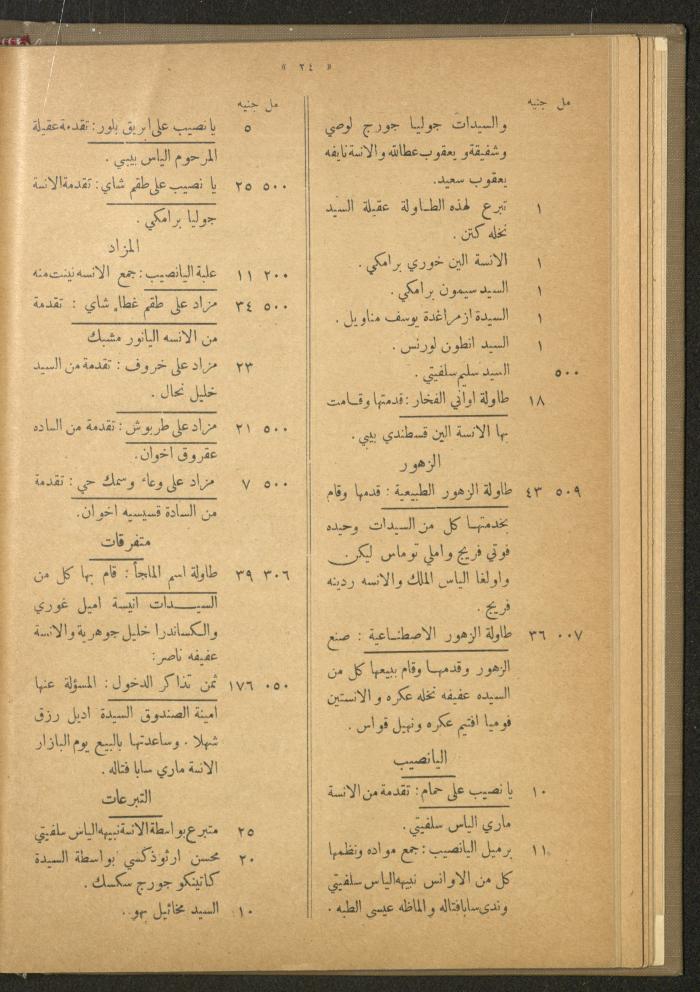 « ٢٤ »
مل جنيه
والسيدات جوليا جورج لوصي
وشفيقة و يعقوب عطالله والانسة نايفه
يعقوب سعيد.
١ تبرع لهذه الطاولة عقيلة السيد
نخله كتن .
١ الانسة الين خوري برامكي .
١ السيد سيمون برامكي .
١ السيدة ازمراغدة يوسف مناويل .
١ السيد انطون لورنس .
٥٠٠ السيد سليم سلفيتي .
١٨ طاولة اواني الفخار : قدمتها وقامت
بها الانسة الين قسطندي بيبي .
الزهور
٥٠٩ ٤٣ طاولة الزهور الطبيعية : قدمها وقام
بخدمتها كل من السيدات وحيده
فوتي فريج واملي توماس ليكن .
واولغا الياس الملك والانسه ردينه
فريج .
٠٠٧ ٣٦ طاولة الزهور الاصطناعية : صنع
الزهور وقدمها وقام ببيعها كل من
السيده عفيفه نخله عكره و الانستين
فوميا افتيم عكره ونهيل قواس .
اليانصيب
١٠ يا نصيب على حمام : تقدمة من الانسة
ماري الياس سلفيتي .
١١ برميل اليانصيب : جمع مواده ونظمها
كل من الاوانس نبيهه الياس سلفيتي
وندى سابا فتاله والماظه عيسى الطبه .
مل جنيه
٥ يا نصيب على ابريق بلور : تقدمة عقيلة
المرحوم الياس بيبي .
٥٠٠ ٢٥ يا نصيب على طقم شاي : تقدمة الانسة
جوليا برامكي .
المزاد
٢٠٠ ١١ علبة اليانصيب : جمع الانسه نينت منه
٥٠٠ ٣٤ مزاد على طقم غطاء شاي : تقدمة
من الانسه اليانور مشبك
٢٣ مزاد على خروف : تقدمة من السيد
خليل نحال .
٥٠٠ ٢١ مزاد على طربوش : تقدمة من الساده
عقروق اخوان .
٥٠٠ ٧ مزاد على وعاء وسمك حي : تقدمة
من السادة قسيسيه اخوان .
متفرقات
٣٠٦ ٣٩ طاولة اسم الملجأ : قام بها كل من
السيــدات انيسة اميل غوري
والكساندرا خليل جوهرية والانسة
عفيفه ناصر :
٠٥٠ ١٧٦ ثمن تذاكر الدخول : المسؤلة عنها
امينة الصندوق السيدة اديل رزق
شهلا . وساعدتها بالبيع يوم البازار
الانسة ماري سابا فتاله .
التبرعات
٢٥ متبرع بواسطة الانسة نبيهه الياس سلفيتي
٢٠ محسن ارثوذكسي بواسطة السيدة
كاتينكو جورج سكسك .
١٠ السيد مخائيل بهو .